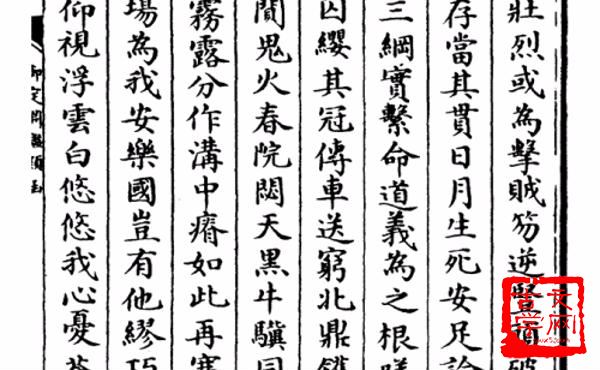 壯烈或為擊賊笏逆豎頭破
存當其貫日月生死安足論
三綱實繫命道義為之根嗟
囚纓其冠傳車送窮北鼎鑊
間鬼火春院閟天黑牛驥同
霧露分作溝中瘠如此再寒
場為我安樂國豈有他繆巧
仰視浮雲白悠悠我心憂蒼